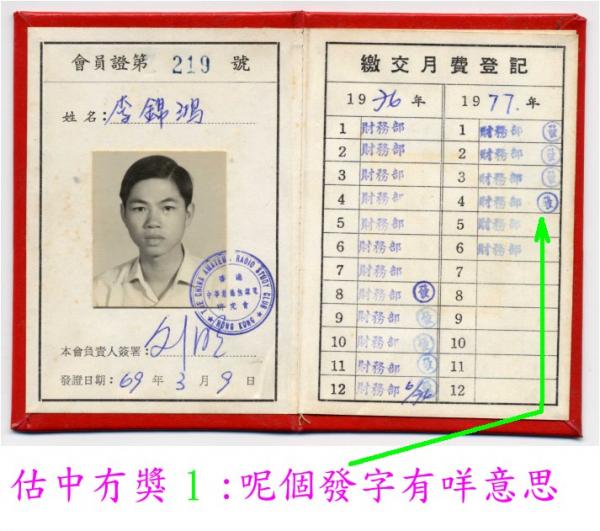 會員證第 219 號
姓名：李錦鴻
THE CHINA AMATEUR RADIO STUDY CLUB
HONG KONG
中華業餘無線電
研究會
本會負責人簽署：
發證日期：69 年 3 月 9 日
繳交月費登記
1976 年 1977. 年
1 財務部 1 財務部 發
2 財務部 2 財務部 發
3 財務部 3 財務部 發
4 財務部 4 財務部 發
5 財務部 5 財務部
6 財務部 6 財務部
7 財務部 7
8 財務部 發 8
9 財務部 發 9
10 財務部 發 10
11 財務部 發 11
12 財務部 發 12
估中冇獎1:呢個發字有咩意思